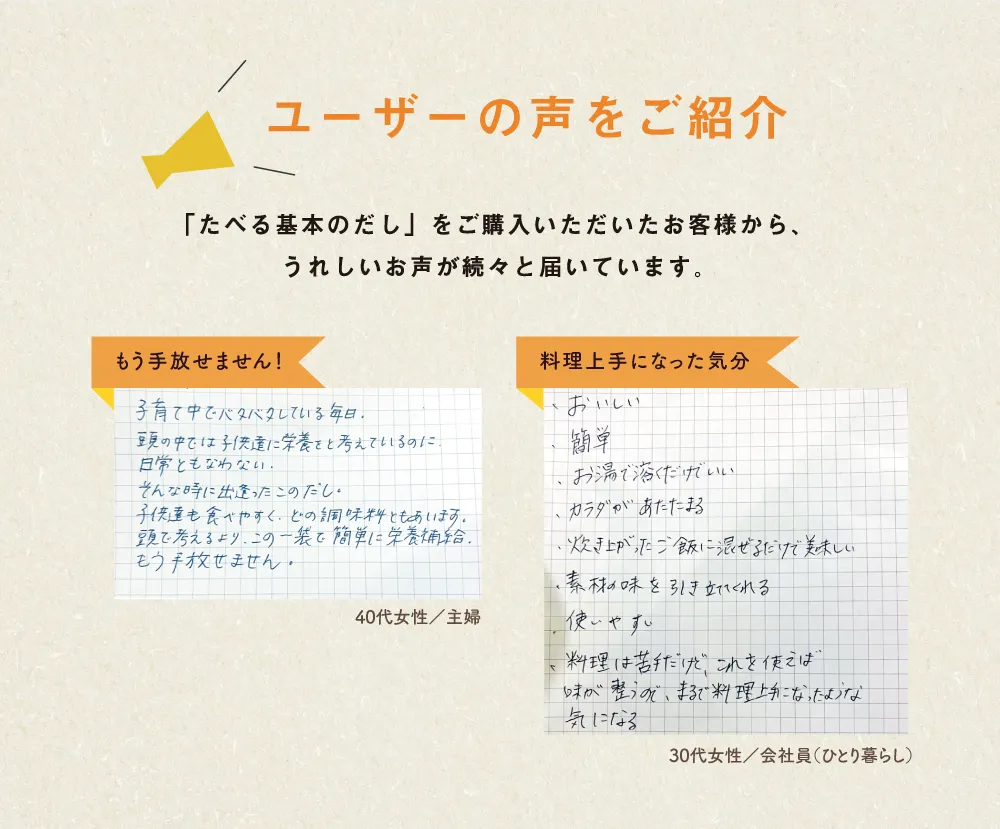 ユーザーの声をご紹介
「たべる基本のだし」をご購入いただいたお客様から、
うれしいお声が続々と届いています。
もう手放せません!
子育て中でバタバタしている毎日。
頭の中では子供達に栄養をと考えているのに、
日常ともなわない。
そんな時に出逢ったこのだし。
子供達も食べやすく、どの調味料ともあいます。
頭で考えるより、この一袋で簡単に栄養補給。
もう手放せません。
40代女性／主婦
料理上手になった気分
、おいしい
、簡単
、お湯で溶くだけでいい
、カラダがあたたまる
、炊き上がったご飯に混ぜるだけで美味しい
、素材の味を引き立てくれる
、使いやすい
、料理は苦手だけど、これを使えば
味が整うので、まるで料理上手になったような
気になる
30代女性／会社員(ひとり暮らし)